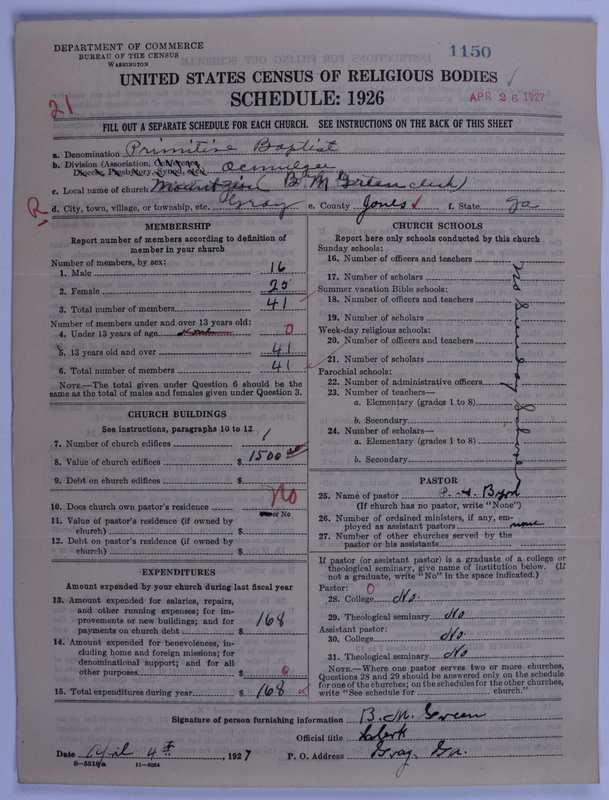 DEPARTMENT OF COMMERCE
BUREAU OF THE CENSUS
WASHINGTON
1150
UNITED STATES CENSUS OF RELIGIOUS BODIES
SCHEDULE: 1926
APR 26 1927
21
FILL OUT A SEPARATE SCHEDULE FOR EACH CHURCH. SEE INSTRUCTIONS ON THE BACK OF THIS SHEET
a. Denomination Primitive Baptist
b. Division (Association, Conference, Diocese, Presbytery, Synod, etc.) Ocmulgee
c. Local name of church Mount Zion (B. M. Green clerk)
R
d. City, town, village, or township, etc. Gray e. County Jones f. State Ga
MEMBERSHIP
Report number of members according to definition of
member in your church
Number of members, by sex:
1. Male 16
2. Female 25
3. Total number of members 41
Number of members under and over 13 years old:
4. Under 13 years of age 0
5. 13 years old and over 41
6. Total number of members 41
NOTE.—The total given under Question 6 should be the
same as the total of males and females given under Question 3.
CHURCH BUILDINGS
See instructions, paragraphs 10 to 12
7. Number of church edifices 1
8. Value of church edifices $ 1500.00
9. Debt on church edifices $
10. Does church own pastor's residence No
Yes or No
11. Value of pastor's residence (if owned by
church) $
12. Debt on pastor's residence (if owned by
church) $
EXPENDITURES
Amount expended by your church during last fiscal year
13. Amount expended for salaries, repairs,
and other running expenses; for im-
provements or new buildings; and for
payments on church debt $ 168
14. Amount expended for benevolences, in-
cluding home and foreign missions; for
denominational support; and for all
other purposes $ 0
15. Total expenditures during year $ 168
CHURCH SCHOOLS
Report here only schools conducted by this church
Sunday schools:
16. Number of officers and teachers
17. Number of scholars
Summer vacation Bible schools:
18. Number of officers and teachers
19. Number of scholars
Week-day religious schools:
20. Number of officers and teachers
21. Number of scholars
Parochial schools:
22. Number of administrative officers
23. Number of teachers—
a. Elementary (grades 1 to 8)
b. Secondary
24. Number of scholars—
a. Elementary (grades 1 to 8)
b. Secondary
No Sunday School
PASTOR
25. Name of pastor
(If church has no pastor, write "None")
26. Number of ordained ministers, if any, em-
ployed as assistant pastors none
27. Number of other churches served by the
pastor or his assistants
If pastor (or assistant pastor) is a graduate of a college or
theological seminary, give name of institution below. (If
not a graduate, write "No" in the space indicated.)
Pastor: 0
28. College No.
29. Theological seminary No
Assistant pastor:
30. College No.
31. Theological seminary No
NOTE.—Where one pastor serves two or more churches,
Questions 28 and 29 should be answered only on the schedule
for one of the churches; on the schedules for the other churches,
write "See schedule for church."
Signature of person furnishing information B. M. Green
Official title Clerk
Date April 4th, 1927 P. O. Address Gray, Ga.
6—5518a 11—9034